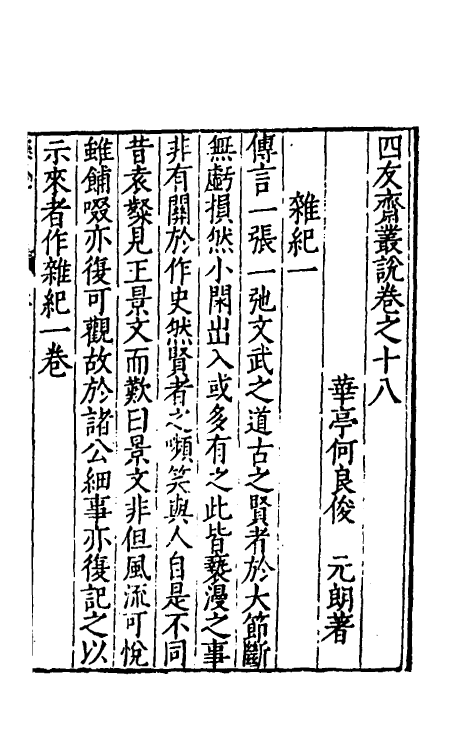 四友齋叢說卷之十八
華亭何良俊　元朗著
雜紀一
傳言一張一弛文武之道古之賢者於大節斷
無虧損然小閑出入或多有之此皆褻漫之事
非有關於作史然賢者之嚬笑與人自是不同
昔袁粲見王景文而歎曰景文非但風流可悅
雖餔啜亦復可觀故於諸公細事亦復記之以
示來者作雜紀一卷